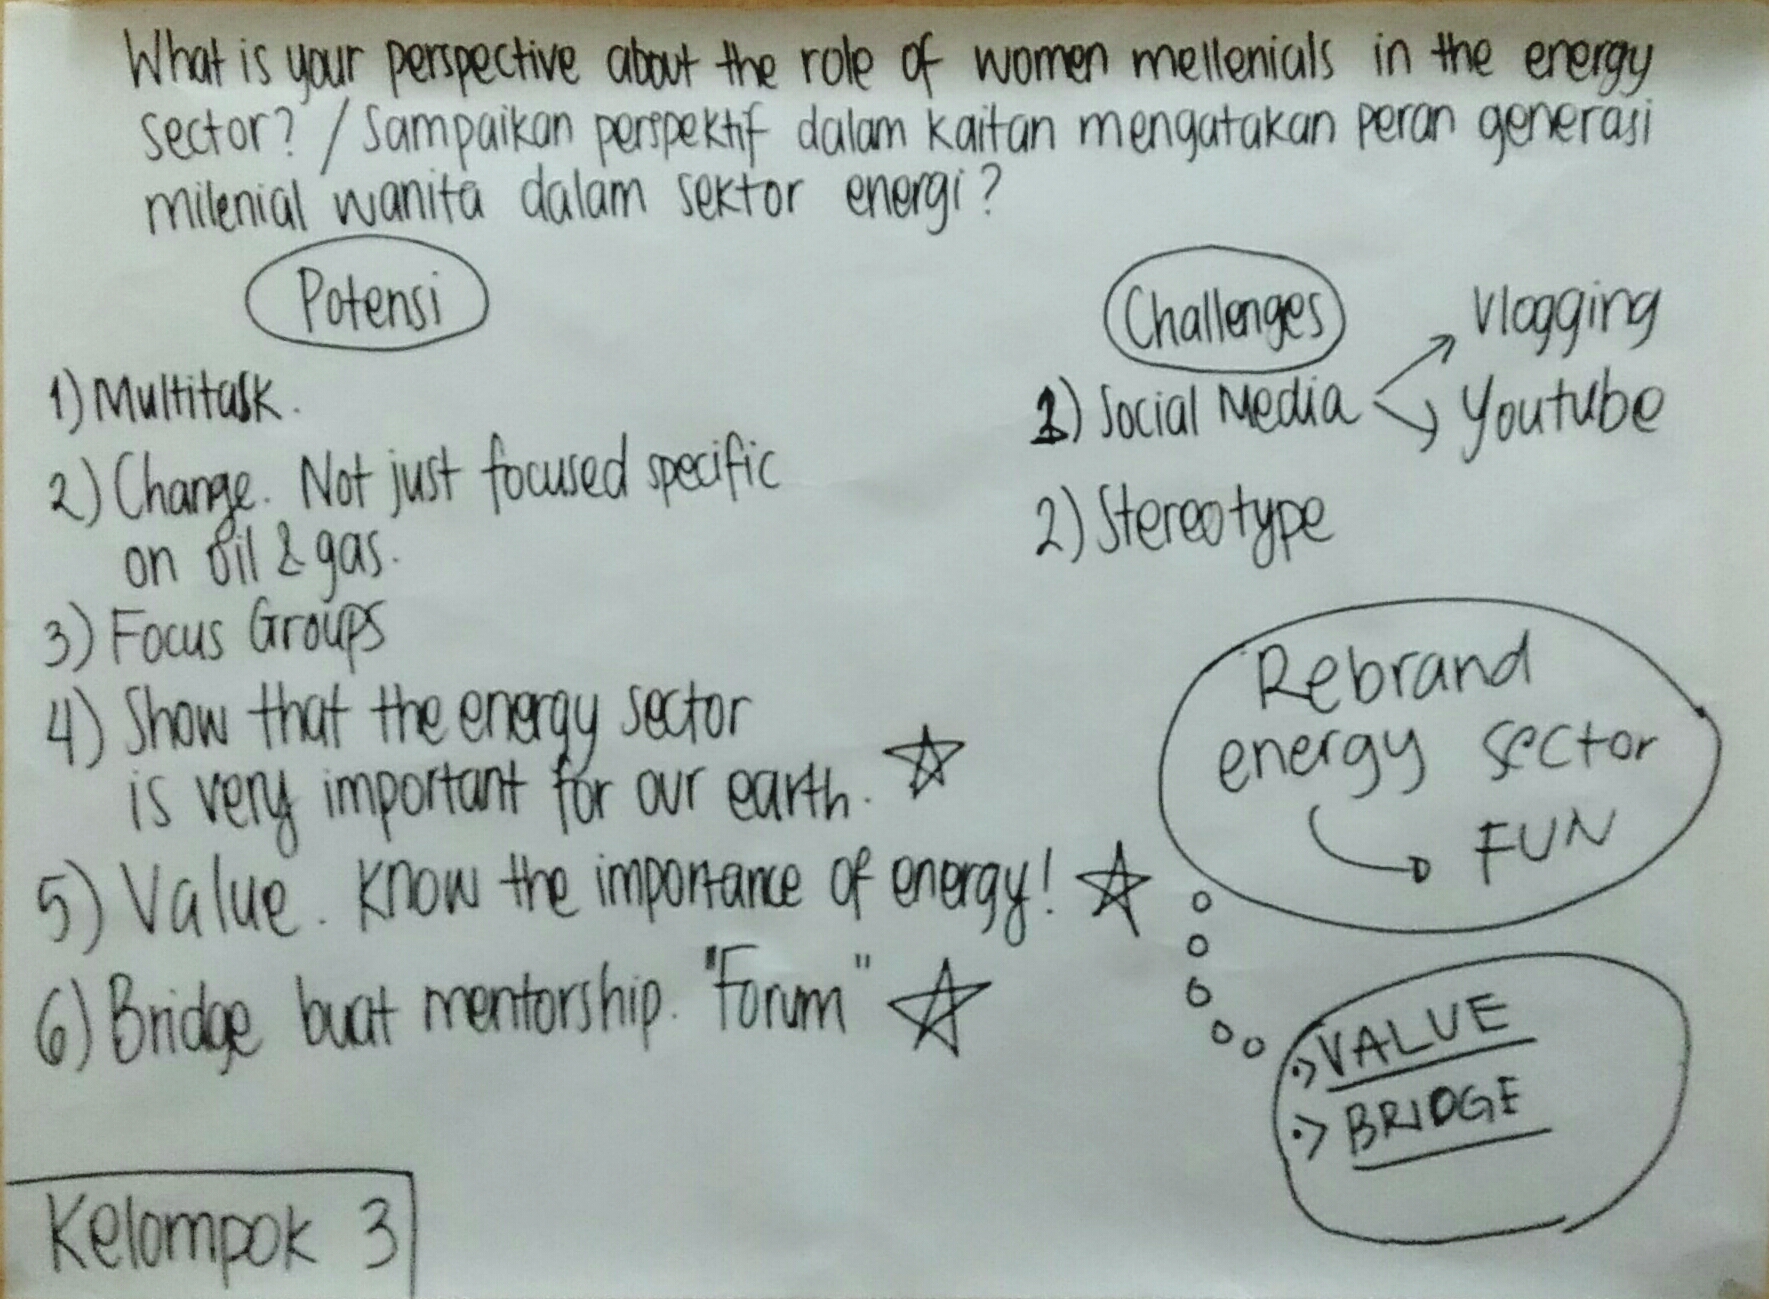 What is your perspective about the role of women mellenials in the energy
sector? / Sampaikan perspektif dalam kaitan mengatakan peran generasi
milenial wanita dalam sektor energi?
Potensi
1) Multitask.
2) Change. Not just focused specific
on oil & gas.
3) Focus Groups
4) Show that the energy sector
is very important for our earth.
5) Value. Know the importance of energy!
6) Bridge buat mentorship. "Forum"
Challenges
1) Social Media
Vlogging
Youtube
2) Stereotype
Rebrand
energy sector
FUN
VALUE
BRIDGE
Kelompok 3